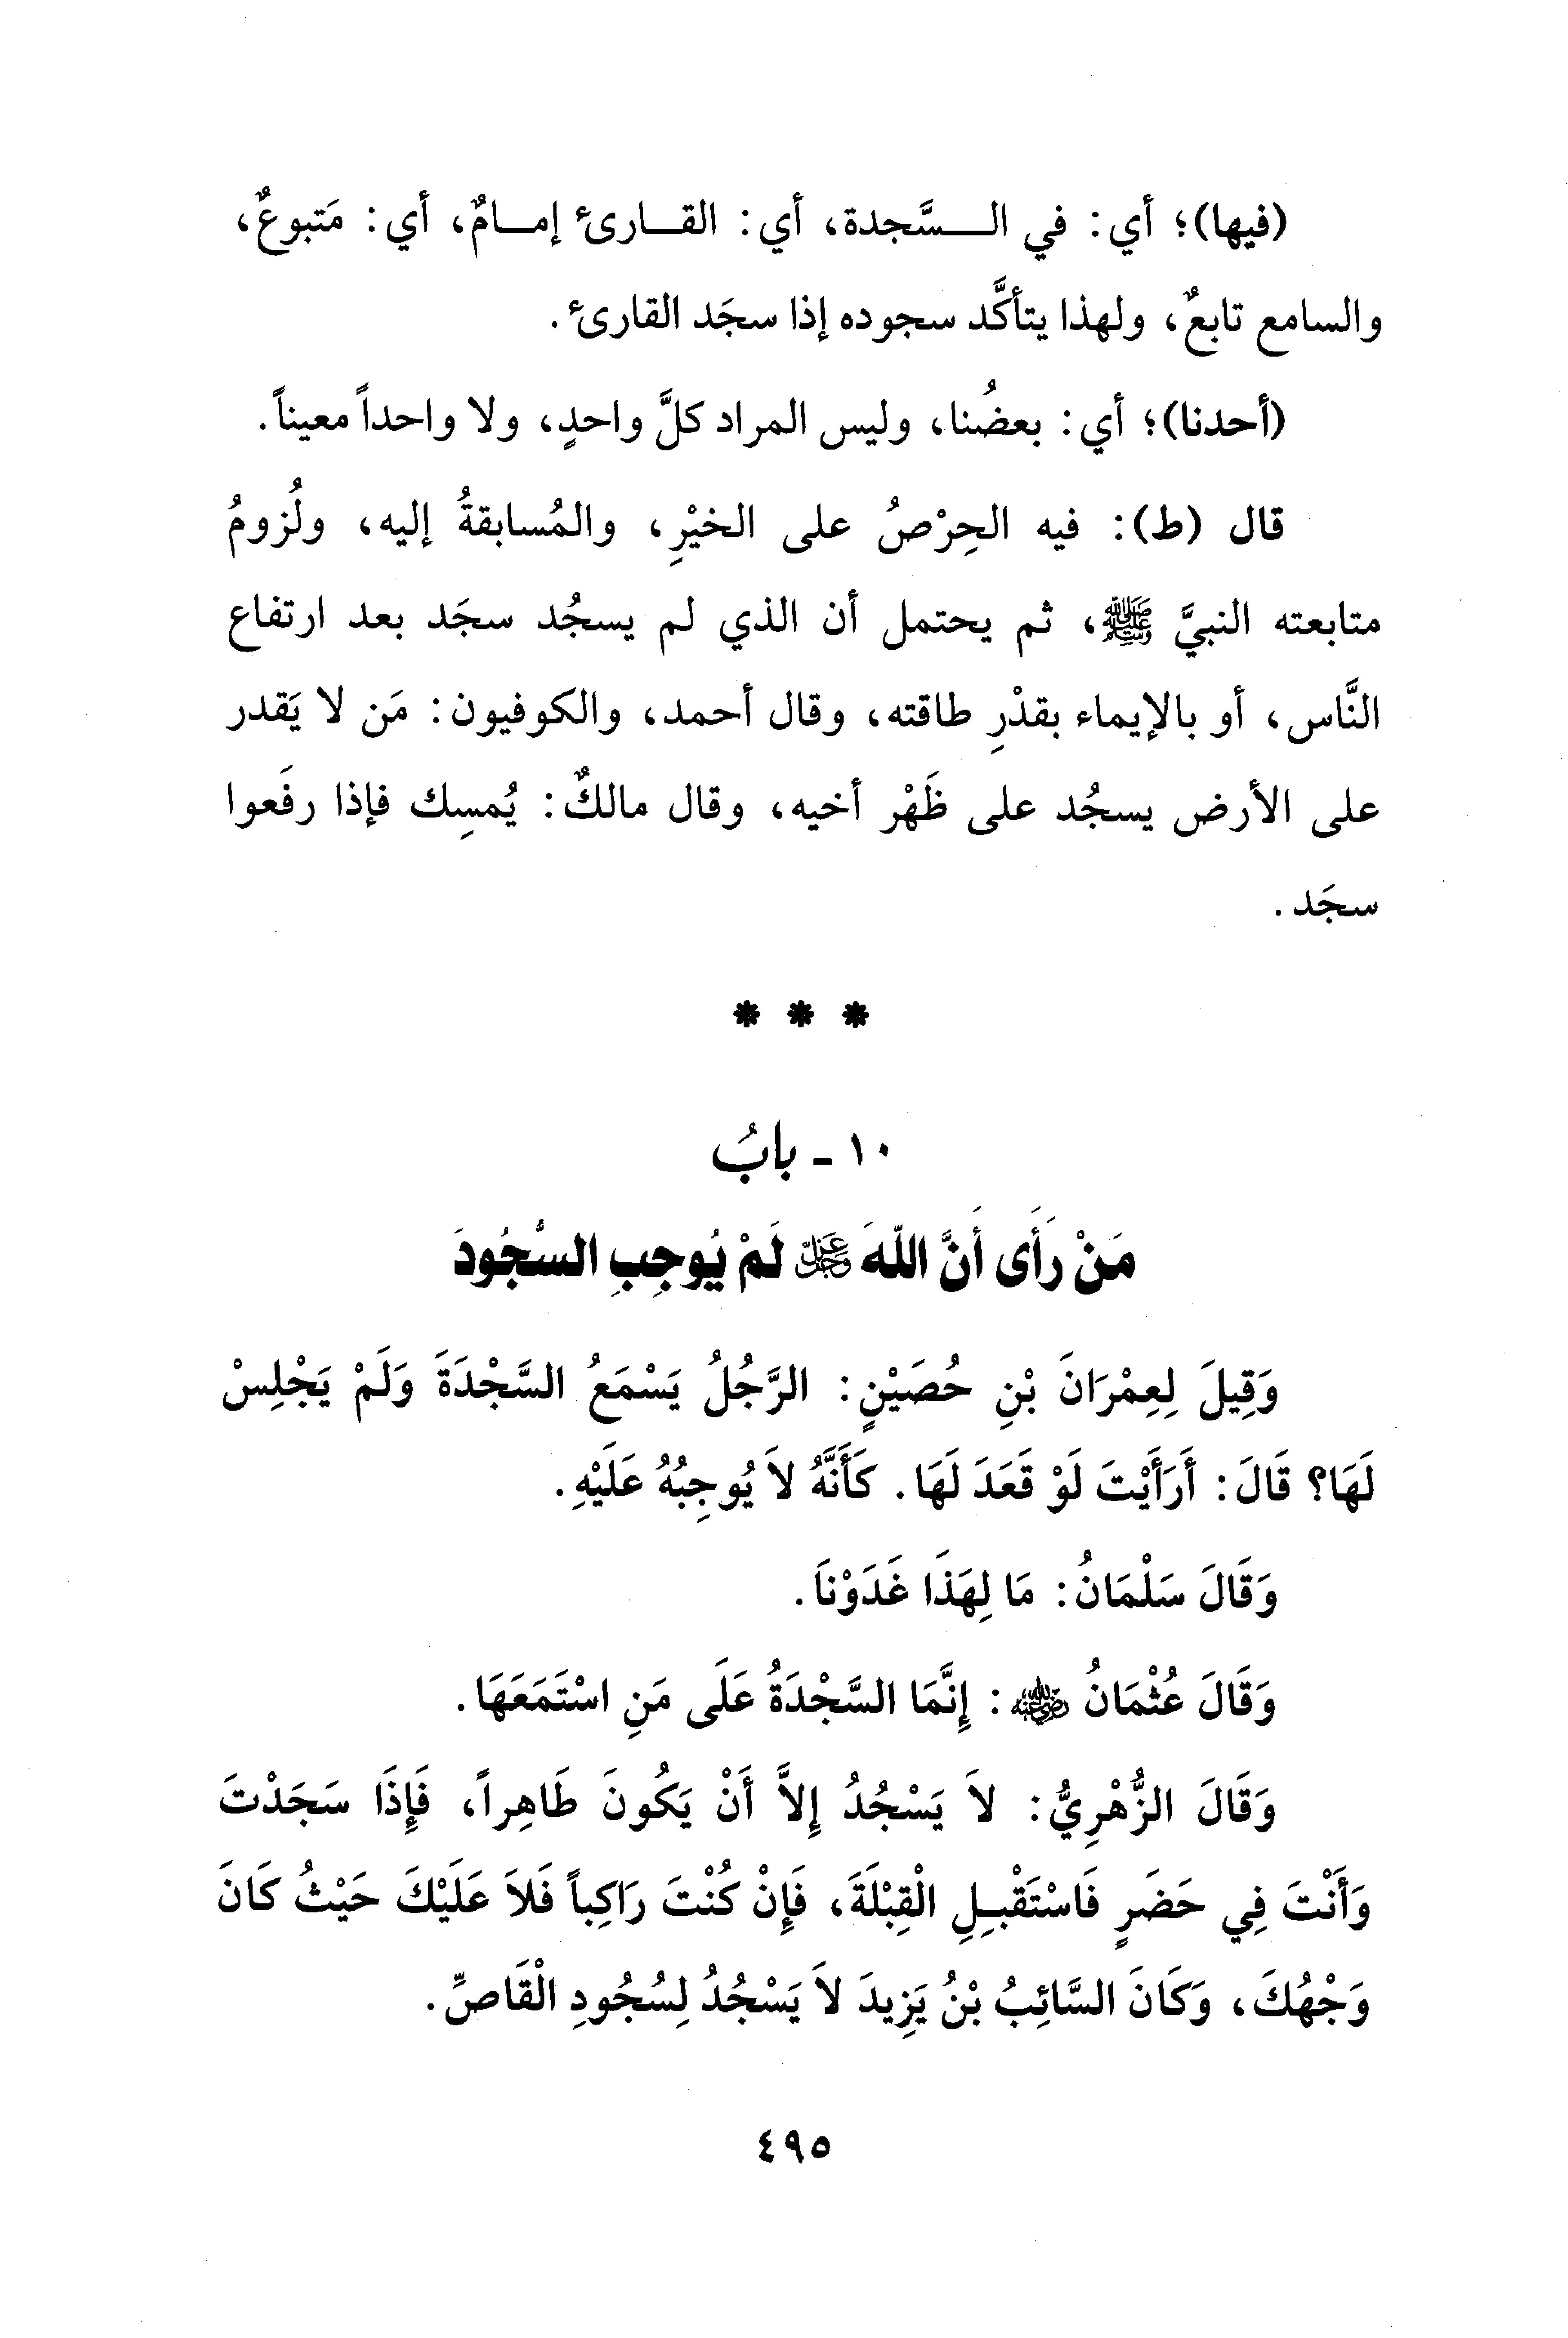 (فيها)؛ أي: في السَّجدة، أي: القارئ إمامٌ، أي: مَتبوعٌ،
والسامع تابعٌ، ولهذا يتأكَّد سجوده إذا سجَد القارئ.
(أحدنا)؛ أي: بعضُنا، وليس المراد كلَّ واحدٍ، ولا واحداً معيناً.
قال (ط): فيه الحِرْصُ على الخيْرِ، والمُسابقةُ إليه، ولُزومُ
متابعته النبيَّ ﷺ، ثم يحتمل أن الذي لم يسجُد سجَد بعد ارتفاع
النَّاس، أو بالإيماء بقدْرِ طاقته، وقال أحمد، والكوفيون: مَن لا يَقدر
على الأرض يسجُد على ظَهْر أخيه، وقال مالكٌ: يُمسِك فإذا رفَعوا
سجَد.
* * *
١٠ - بابُ
مَنْ رَأَى أَنَّ اللهَ عَزَّ وَجَلَّ لَمْ يُوجِبِ السُّجُودَ
وَقِيلَ لِعِمْرَانَ بْنِ حُصَيْنٍ: الرَّجُلُ يَسْمَعُ السَّجْدَةَ وَلَمْ يَجْلِسْ
لَهَا؟ قَالَ: أَرَأَيْتَ لَوْ قَعَدَ لَهَا. كَأَنَّهُ لاَ يُوجِبُهُ عَلَيْهِ.
وَقَالَ سَلْمَانُ: مَا لِهَذَا غَدَوْناَ.
وَقَالَ عُثْمَانُ رضي الله عنه: إِنَّمَا السَّجْدَةُ عَلَى مَنِ اسْتَمَعَهَا.
وَقَالَ الزُّهْرِيُّ: لاَ يَسْجُدُ إِلاَّ أَنْ يَكُونَ طَاهِراً، فَإِذَا سَجَدْتَ
وَأَنْتَ فِي حَضَرٍ فَاسْتَقْبِلِ الْقِبْلَةَ، فَإِنْ كُنْتَ رَاكِباً فَلاَ عَلَيْكَ حَيْثُ كَانَ
وَجْهُكَ، وَكَانَ السَّائِبُ بْنُ يَزِيدَ لاَ يَسْجُدُ لِسُجُودِ الْقَاصِّ.
٤٩٥